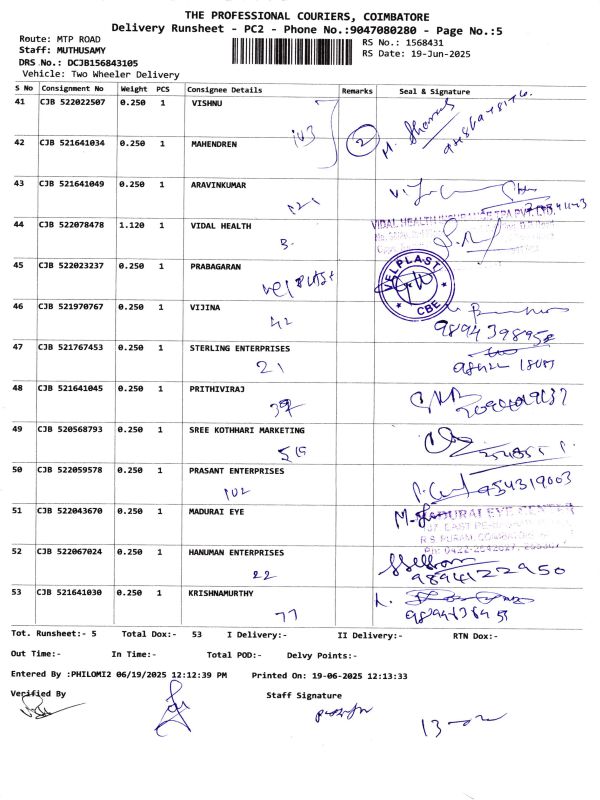 THE PROFESSIONAL COURIERS, COIMBATORE
Delivery Runsheet - PC2 - Phone No.:9047080280 - Page No.:5
Route: MTP ROAD RS No.: 1568431
Staff: MUTHUSAMY RS Date: 19-Jun-2025
DRS No.: DCJB156843105
Vehicle: Two Wheeler Delivery
S No Consignment No Weight PCS Consignee Details Remarks Seal & Signature
41 CJB 522022507 0.250 1 VISHNU
103 2
42 CJB 521641034 0.250 1 MAHENDREN
43 CJB 521641049 0.250 1 ARAVINKUMAR
44 CJB 522078478 1.120 1 VIDAL HEALTH
45 CJB 522023237 0.250 1 PRABAGARAN
VELPLAST
CBE
46 CJB 521970767 0.250 1 VIJINA
42 9894398958
47 CJB 521767453 0.250 1 STERLING ENTERPRISES
21
48 CJB 521641045 0.250 1 PRITHIVIRAJ
49 CJB 520568793 1 0.250 SREE KOTHHARI MARKETING
50 CJB 522059578 0.250 1 PRASANT ENTERPRISES
102 954319003
51 CJB 522043670 0.250 1 MADURAI EYE
MADURAI EYE CENTER
52 CJB 522067024 0.250 1 HANUMAN ENTERPRISES
22 9894122950
53 CJB 521641030 0.250 1 KRISHNAMURTHY
77
Tot. Runsheet:- 5 Total Dox:- 53 I Delivery:- II Delivery:- RTN Dox:-
Out Time:- In Time:- Total POD:- Delvy Points:-
Entered By :PHILOMI2 06/19/2025 12:12:39 PM Printed On: 19-06-2025 12:13:33
Verified By Staff Signature